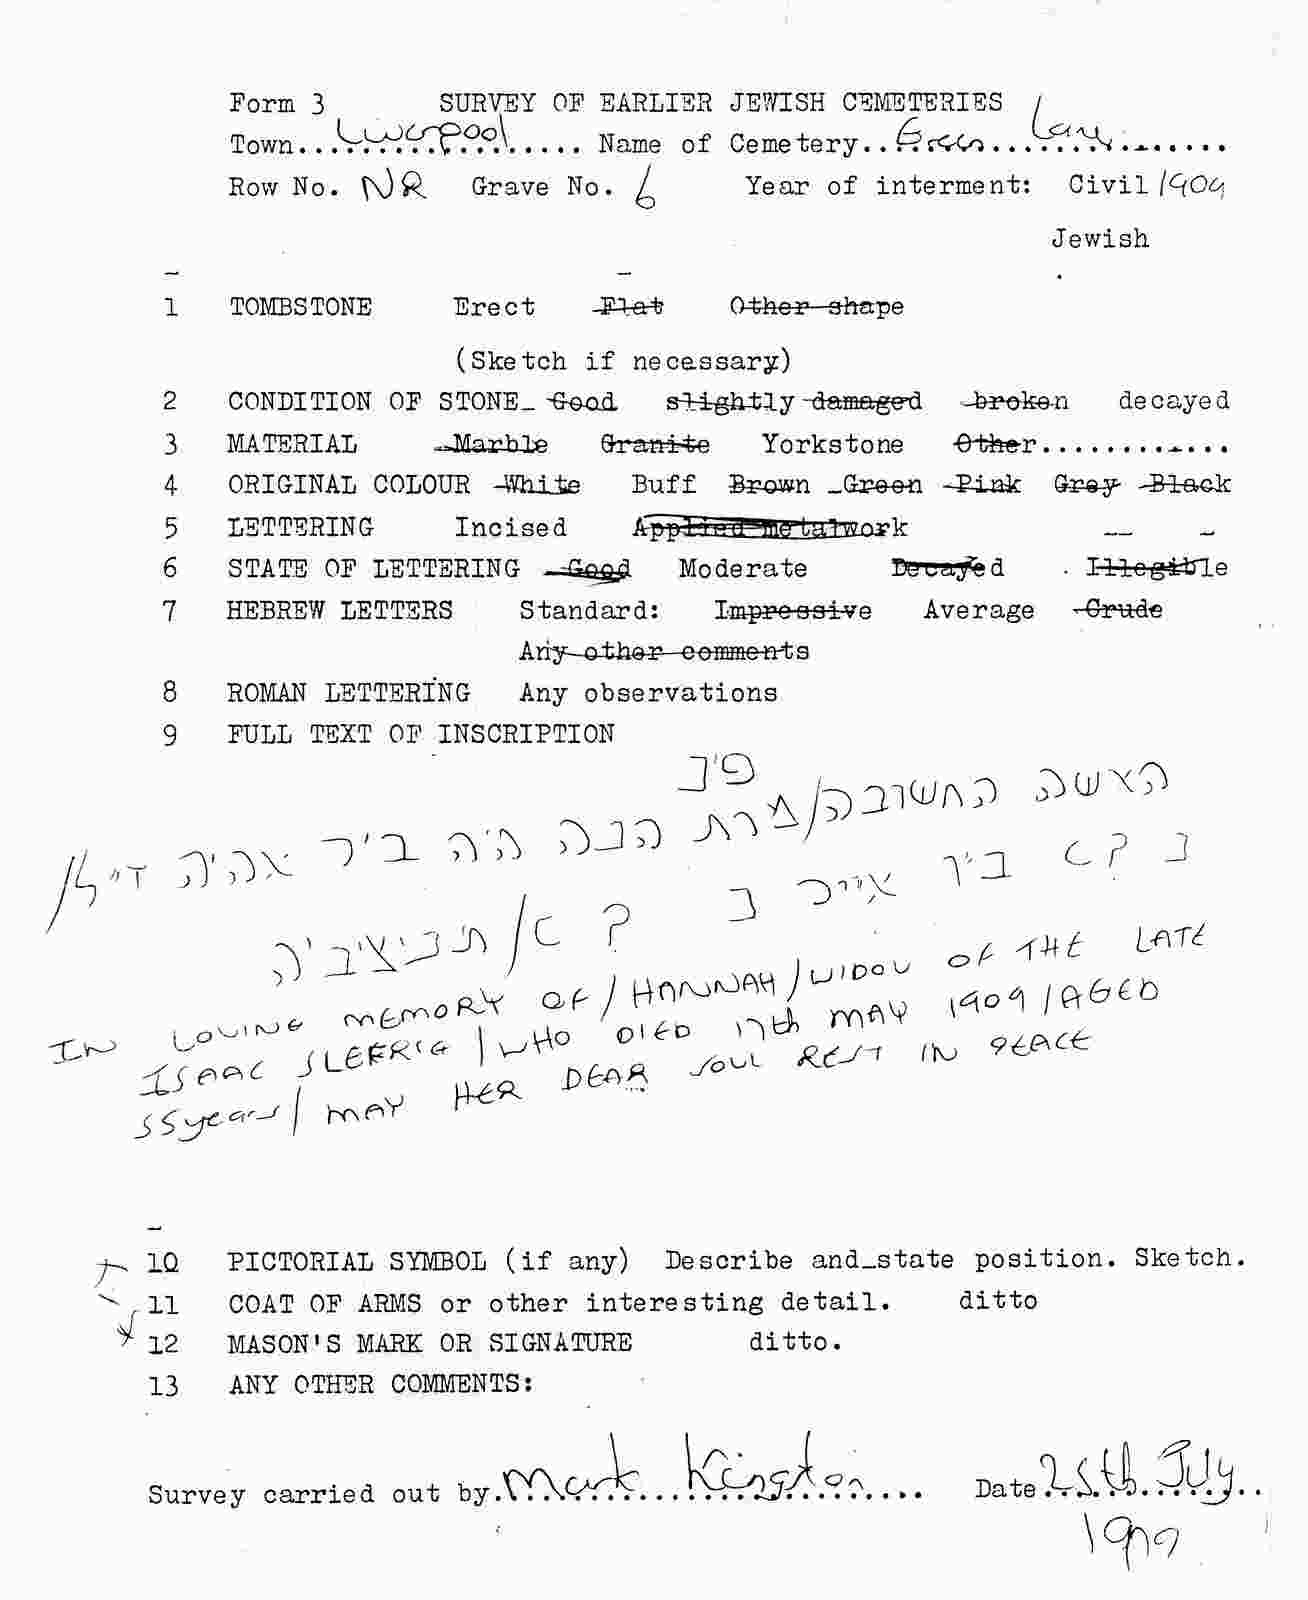 Form 3 SURVEY OF EARLIER JEWISH CEMETERIES
Town..Liverpool.. Name of Cemetery..Green Lane..
Row No. NR Grave No. 6 Year of interment: Civil 1909
Jewish
1 TOMBSTONE Erect Flat Other shape
(Sketch if necessary)
2 CONDITION OF STONE Good slightly damaged broken decayed
3 MATERIAL Marble Granite Yorkstone Other............
4 ORIGINAL COLOUR White Buff Brown Green Pink Grey Black
5 LETTERING Incised Applied metalwork
6 STATE OF LETTERING Good Moderate Decayed Illegible
7 HEBREW LETTERS Standard: Impressive Average Crude
Any other comments
8 ROMAN LETTERING Any observations
9 FULL TEXT OF INSCRIPTION
פ״נ
האשה החשובה/מרת הנה
תנ״צ״ב״ה
IN LOVING MEMORY OF/HANNAH/WIDOW OF THE LATE
ISAAC /WHO DIED 17th MAY 1909/AGED
55 years/MAY HER DEAR SOUL REST IN PEACE
10 PICTORIAL SYMBOL (if any) Describe and state position. Sketch.
11 COAT OF ARMS or other interesting detail. ditto
12 MASON'S MARK OR SIGNATURE ditto.
13 ANY OTHER COMMENTS:
Survey carried out by.Mark Kingston.... Date.25th July..